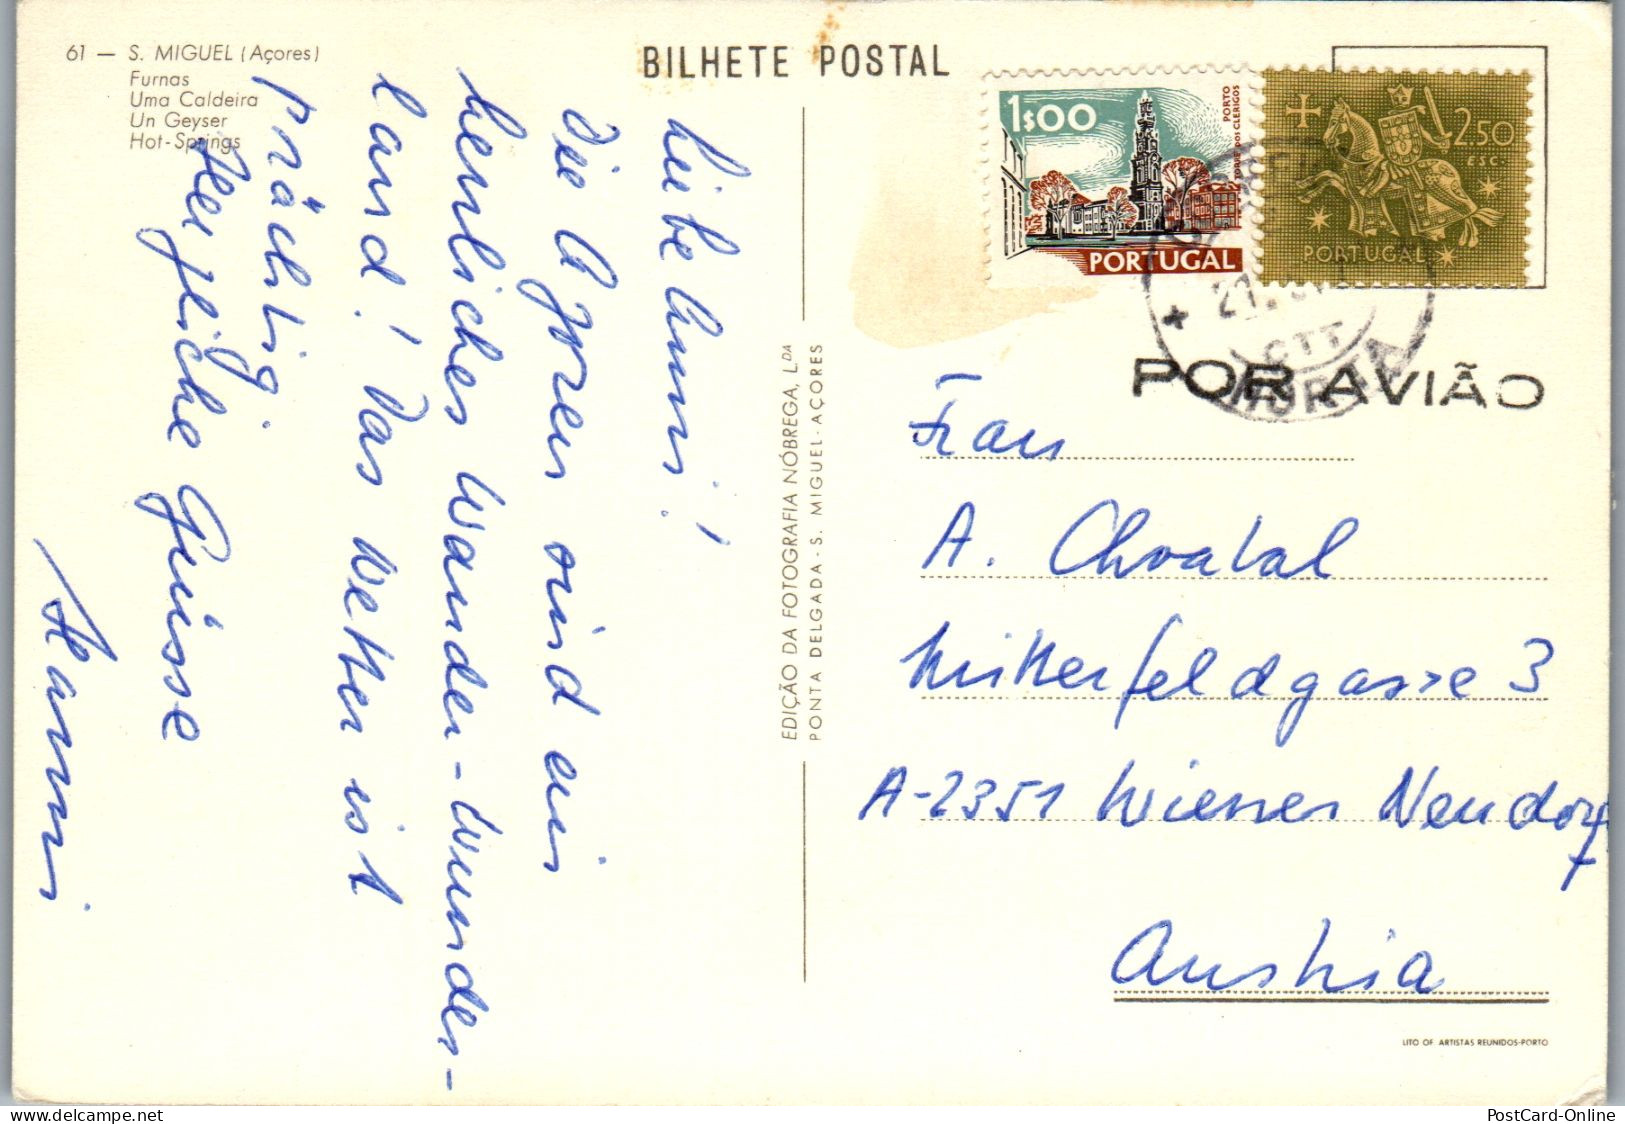 61 — S. MIGUEL (Açores)
Furnas
Uma Caldeira
Un Geyser
Hot-Springs
BILHETE POSTAL
1$00
PORTO
TORRE DOS CLERIGOS
PORTUGAL
2.50
ESC.
PORTUGAL
CTT
HORTA
POR AVIÃO
Liebe Anni!
Die Azoren sind ein
herrliches Wander-Wunder-
land! Das Wetter ist
prächtig.
Herzliche Grüsse
Hanni
EDIÇÃO DA FOTOGRAFIA NÓBREGA, L.DA
PONTA DELGADA - S. MIGUEL - AÇORES
Frau
A. Chvatal
Mitterfeldgasse 3
A-2351 Wiener Neudorf
Austria
LITO OF. ARTISTAS REUNIDOS-PORTO
PostCard-Online